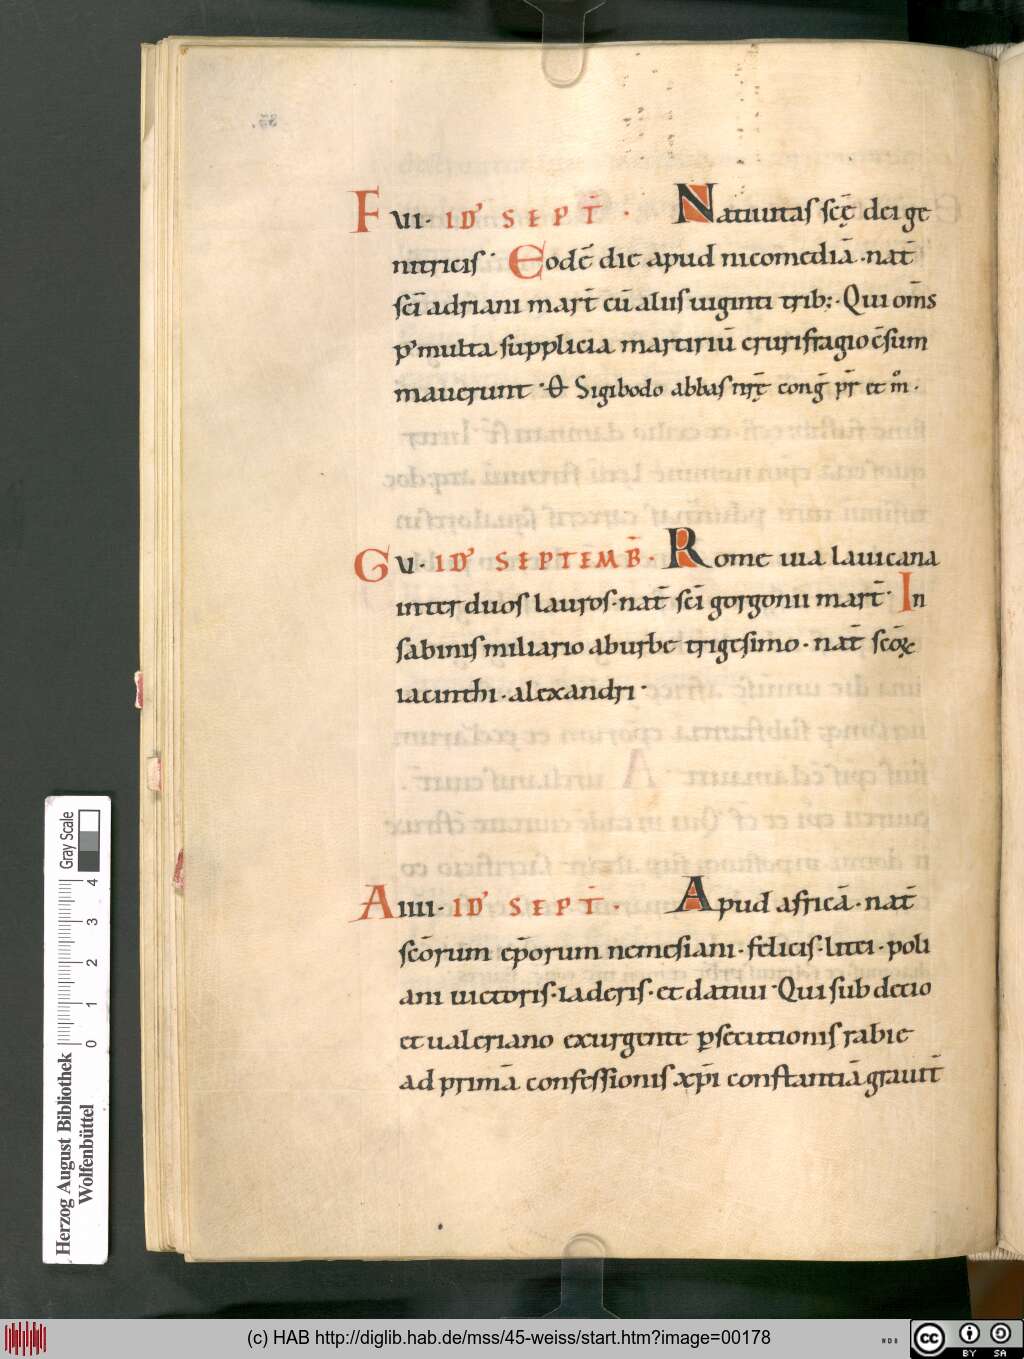 F VI· ID' SEPT̄· Natiuitas scę̄ dei ge
nitricis· Eodē die apud nicomediā·nat̄
sc̄i adriani mart̄ cū aliis uiginti trib;· Qui om̄s
p' multa supplicia martiriū crurifragio c̄sum
mauerunt· Sigibodo abbas nr̄ę conḡ pr̄ et m̊·
G V· ID' SEPTEMB̄· Rome uia lauicana
inter duos lauros·nat̄ sc̄i gorgonii mart̄· In
sabinis miliario aburbe trigesimo·nat̄ sc̄oꝝ
iacinthi·alexandri·
A IIII· ID' SEPT̄· Apud africā·nat̄
sc̄orum ep̄orum nemesiani·felicis·litei·poli
ani uictoris·iaderis·et datiui·Qui sub decio
et ualeriano exurgente ꝑsecutionis rabie
ad primā confessionis xp̄i constantiā grauit̄
Herzog August Bibliothek
Wolfenbüttel
0 1 2 3 4
Gray Scale
(c) HAB http://diglib.hab.de/mss/45-weiss/start.htm?image=00178
cc BY SA